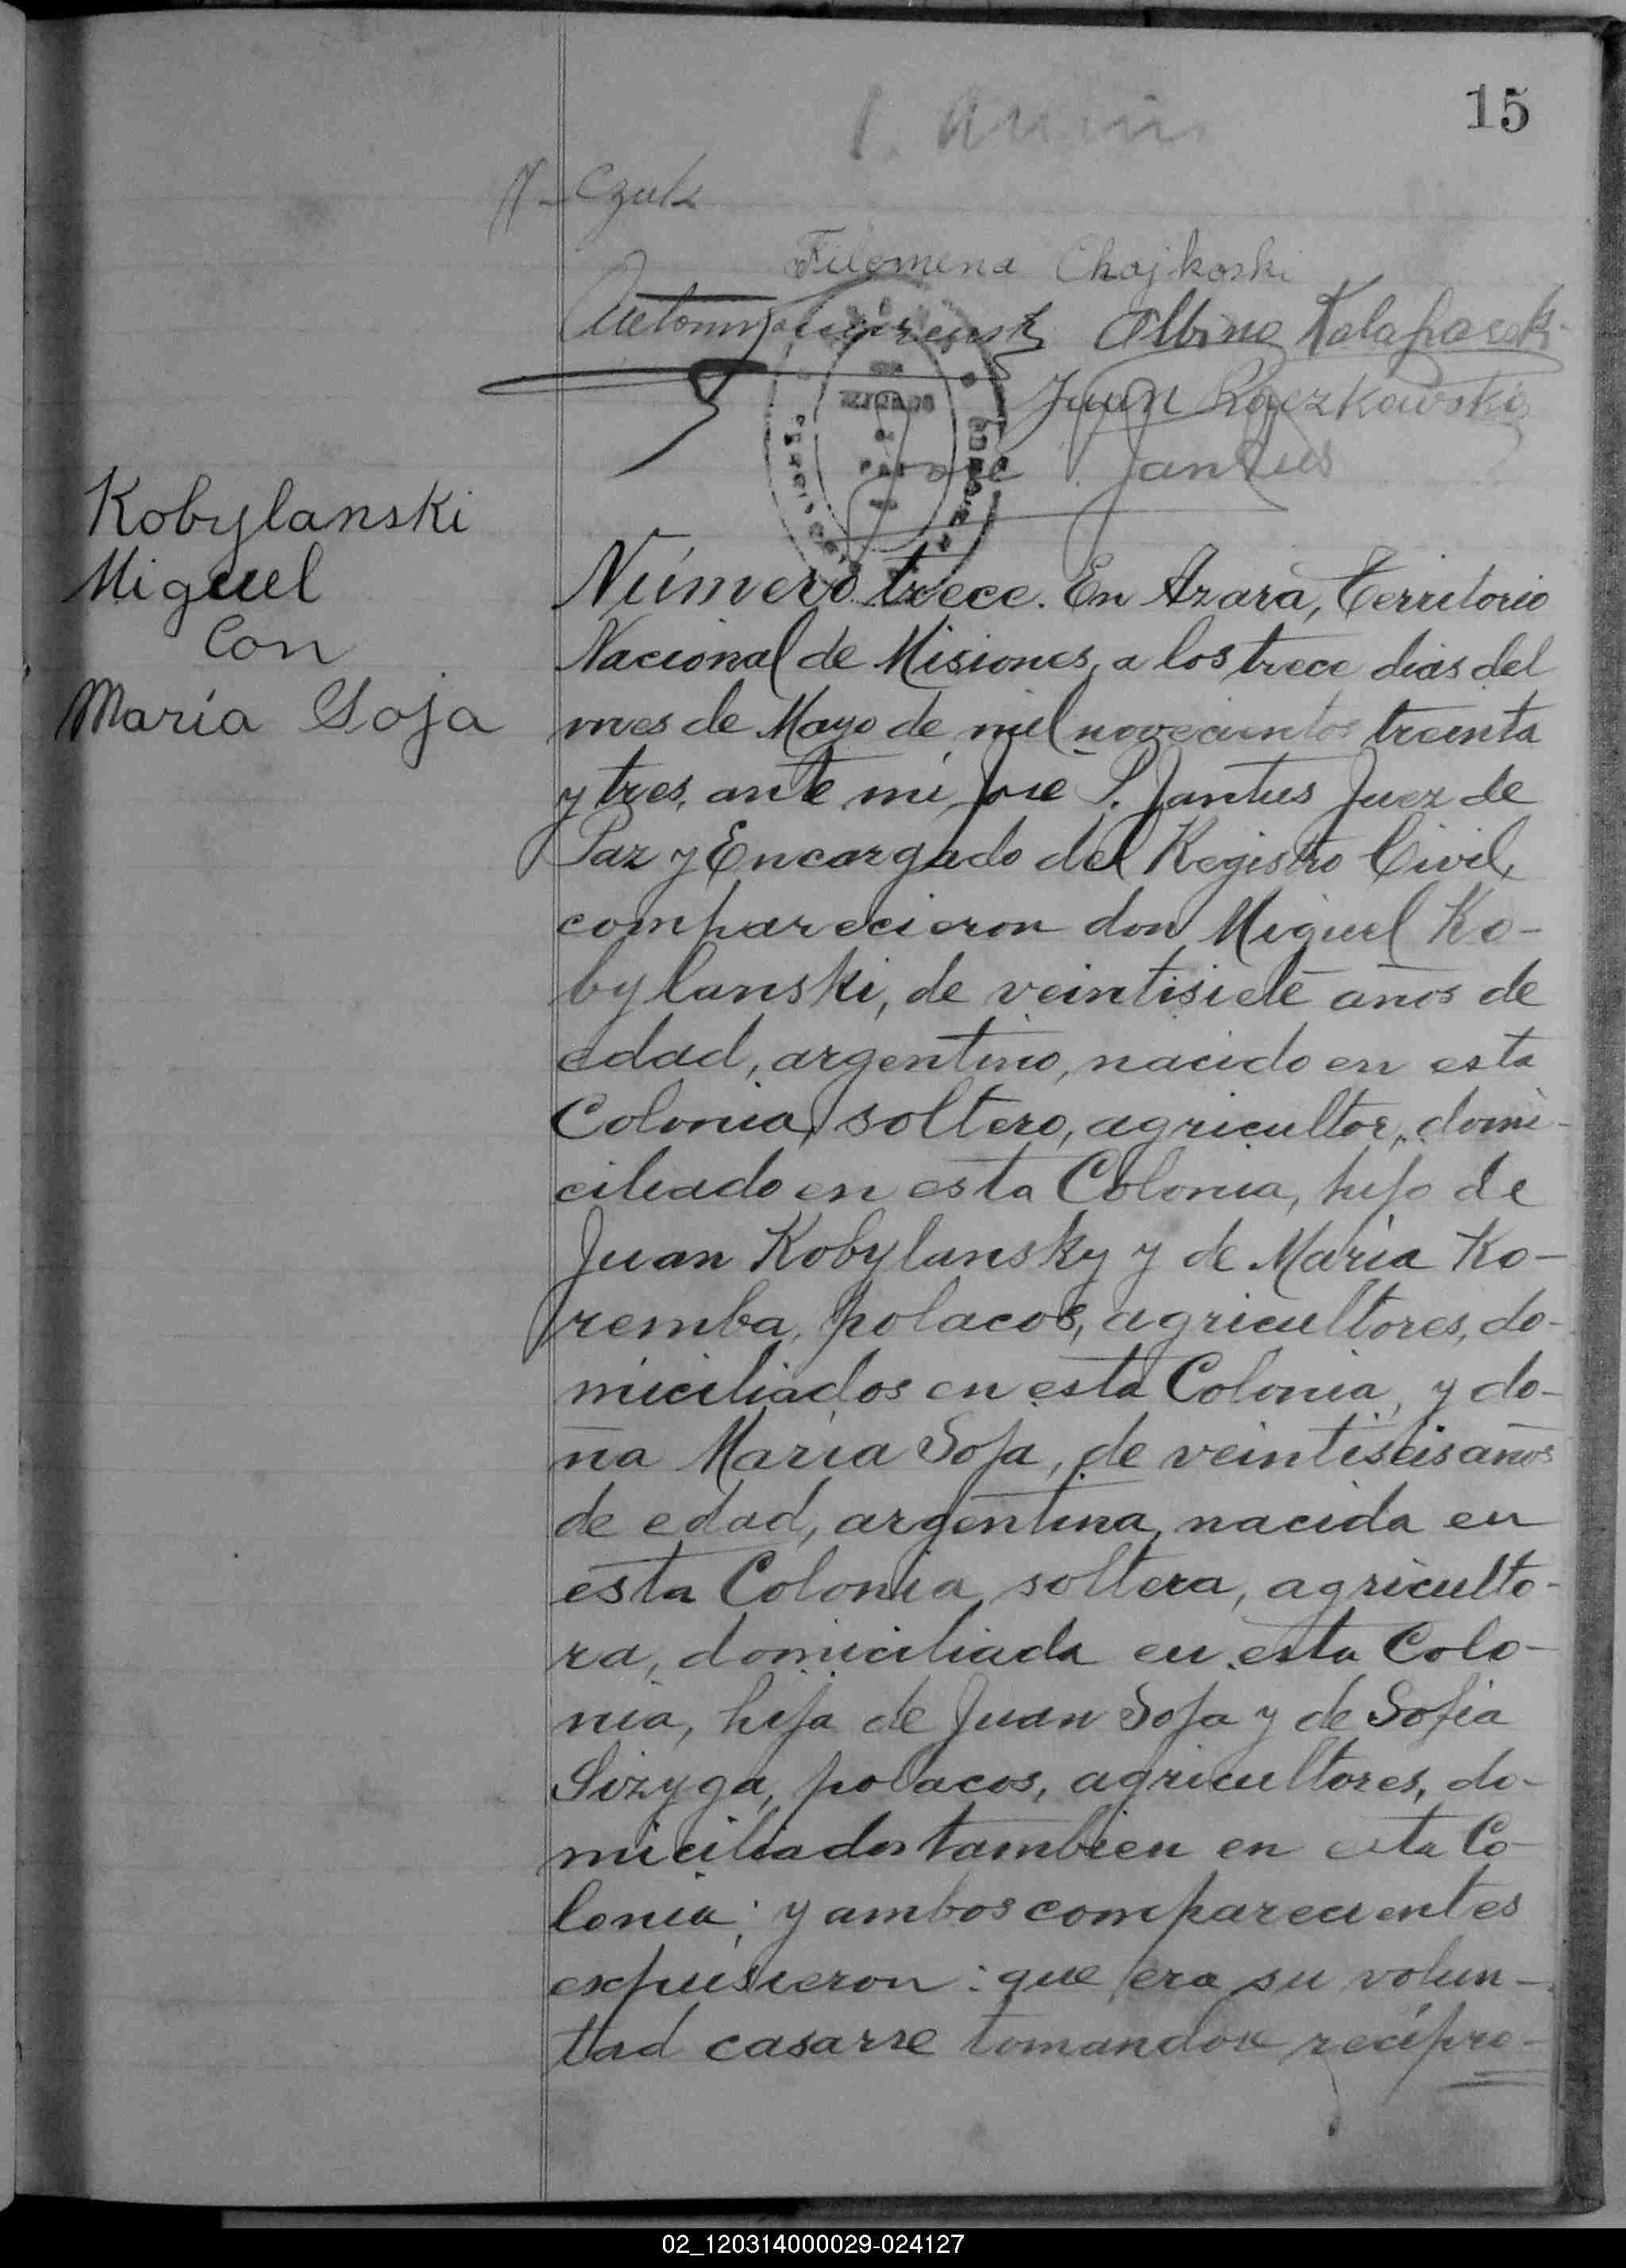 15
N. Czuk
Filomena Chajkoski
Albino
Juan Raczkowski
José P. Jantus
Kobylanski
Miguel
Con
María Soja
Número trece. En Azara, Territorio
Nacional de Misiones, a los trece dias del
mes de Mayo de mil novecientos treinta
y tres, ante mi José P. Jantus Juez de
Paz y Encargado del Registro Civil,
comparecieron don Miguel Ko-
bylanski, de veintisiete años de
edad, argentino, nacido en esta
Colonia, soltero, agricultor, domi-
ciliado en esta Colonia, hijo de
Juan Kobylansky y de María Ko-
remba, polacos, agricultores, do-
miciliados en esta Colonia, y do-
ña María Soja, de veintiseis años
de edad, argentina, nacida en
esta Colonia, soltera, agriculto-
ra, domiciliada en esta Colo-
nia, hija de Juan Soja y de Sofia
Sizyga, polacos, agricultores, do-
miciliados tambien en esta Co-
lonia; y ambos comparecientes
expusieron: que era su volun-
tad casarse tomandose recipro-
02_120314000029-024127